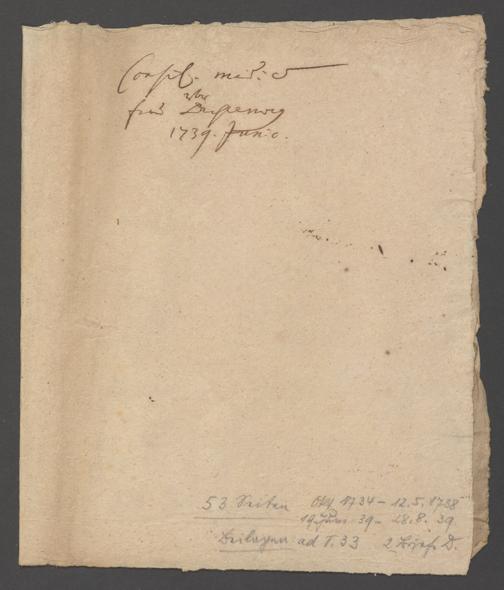 Consil. med.
1739. Junio.
53 Seiten Okt 1734 – 12.5.1738
19. Juni 39 – 28.8.39
Beilagen ad T. 33 2 Briefe D.